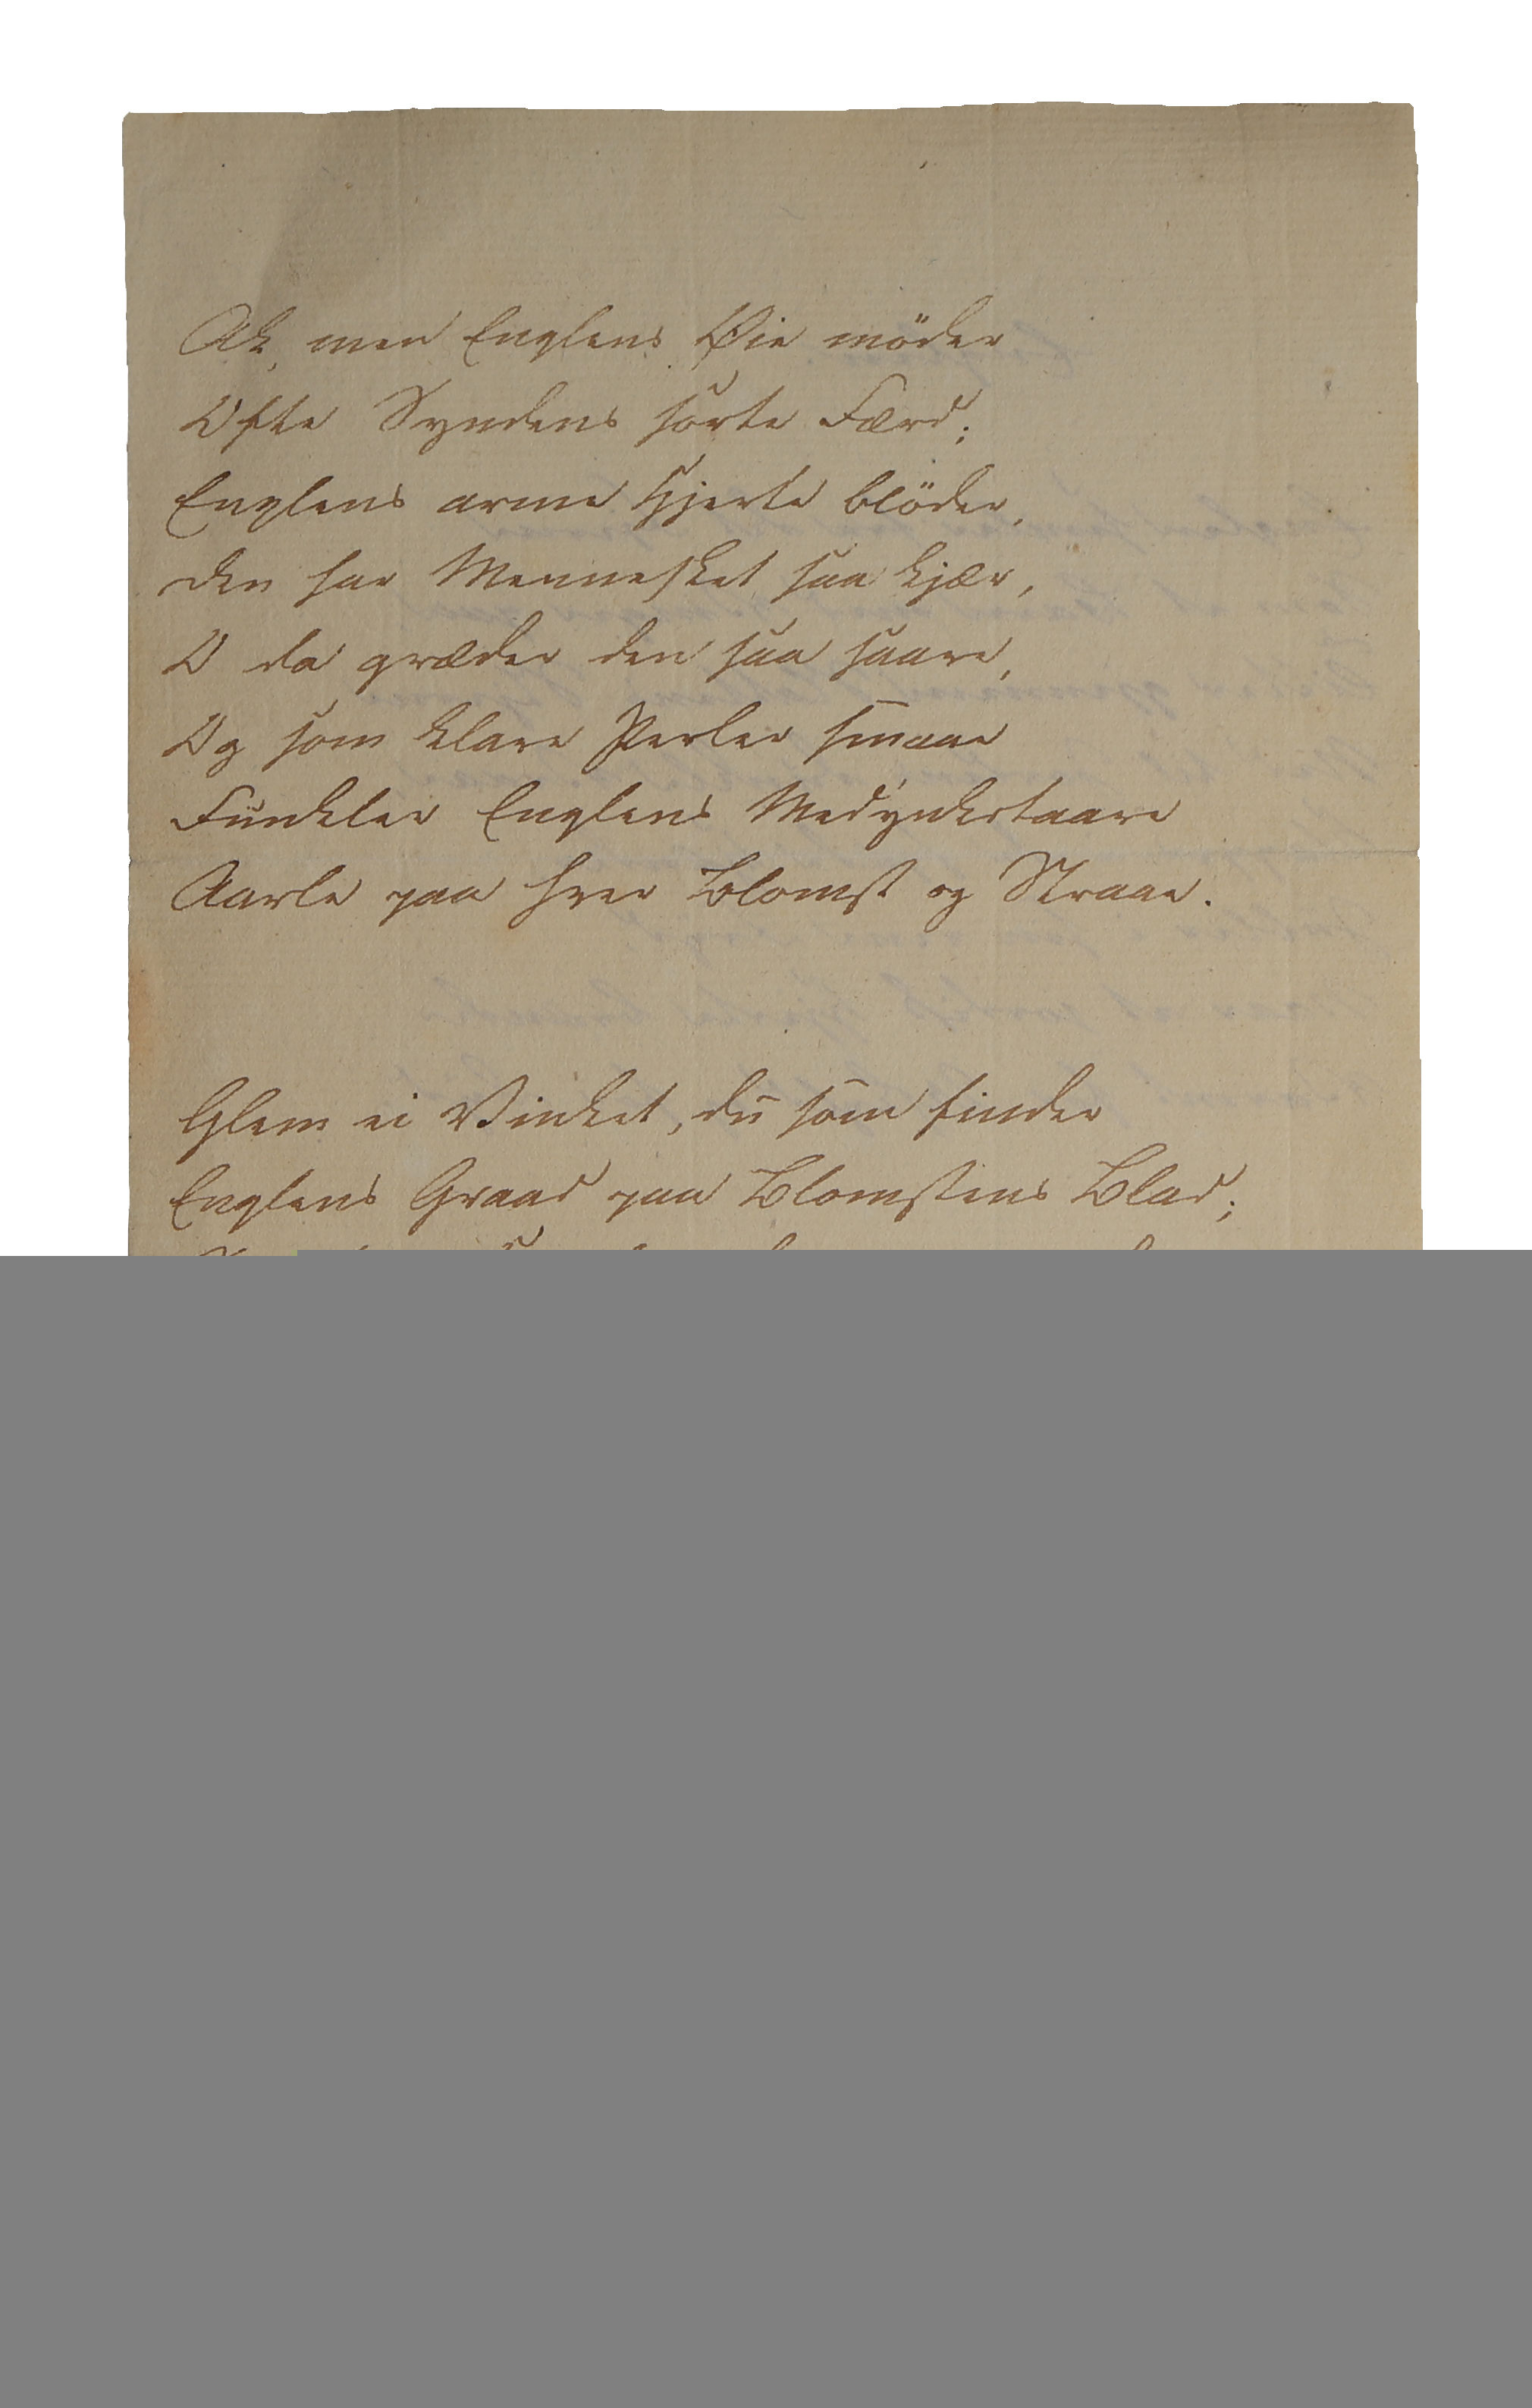 Ak, men Englens Øie möder
Ofte Syndens sorte Færd;
Englens arme Hjerte blöder,
Den har Mennesket saa kjær,
O da græder den saa saare,
Og som klare Perler smaae
Funkler Englens Medynkstaare
Aarle paa hver Blomst og Straae.
Glem ei Vinket, du som finder
Englens Graad paa Blomstens Blad;